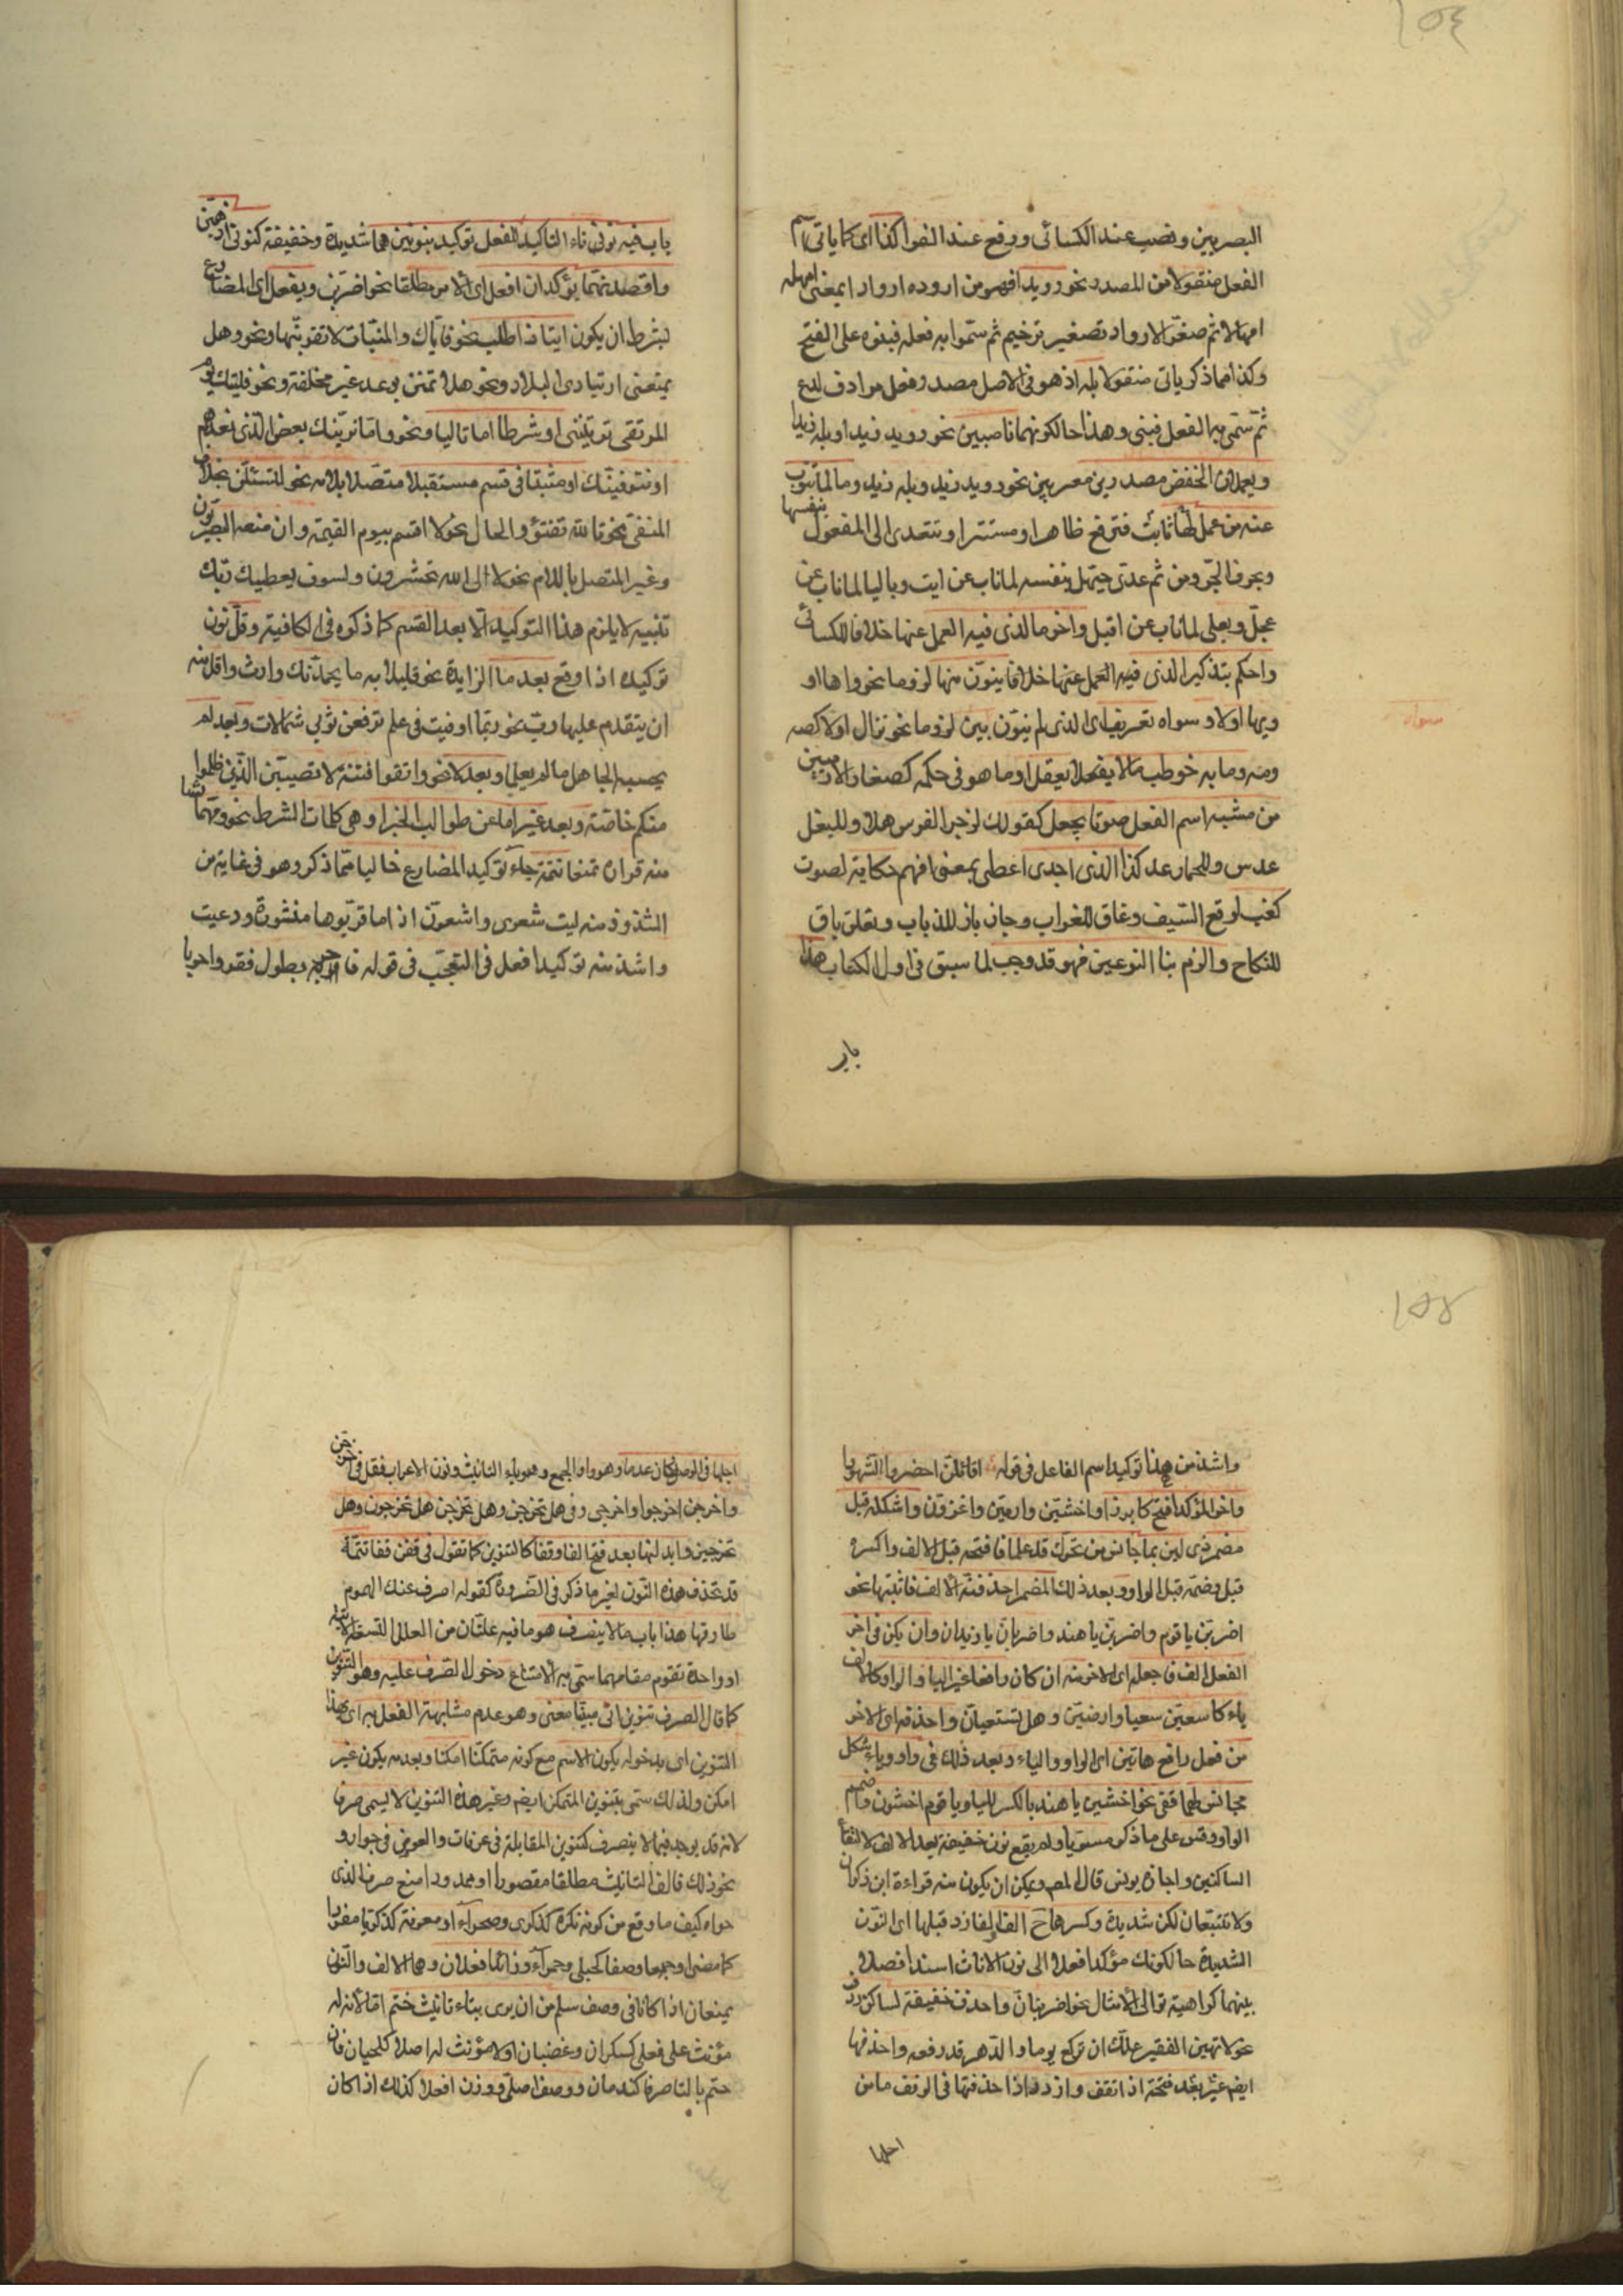 ١٥٤
البصريين ونصب عند الكسائى ورفع عند الفرا كذا اى كما ياتى اسم
الفعل منقولا من المصدر نحو رويدا فهو من اروده اروادا بمعنى امهله
امهالا ثم صغر الارواد تصغير ترخيم ثم سموا به فعله فبنوه على الفتح
وكذا مما ذكر ياتى منقولا بله اذ هو فى الاصل مصدر فعل مرادف لدع
ثم سمى به الفعل فبنى وهذا حالكونهما ناصبين نحو رويد زيدا وبله زيدا
ويعملان الخفض مصدرين معربين نحو رويد زيد وبله زيد وما لما تنوب
عنه من عمل لها ثابت فترفع ظاهرا ومستترا وتتعدى الى المفعول بنفسها
وبحرف الجر ومن ثم عدى حيهل بنفسه لما ناب عن ايت وباليا لما ناب عن
عجل وبعلى لما ناب عن اقبل واخر ما لذى فيه العمل عنها خلافا للكسائى
واحكم بتنكير الذى فيه العمل عنها خلافا ينون منها لزوما نحو واها او
ويها اولا وسواه تعريفه اى الذى لم ينون بين لزوما نحو نزال اولا كصه
سواه
ومنه وما به خوطب مالا يعقل او ما هو فى حكمه كصغار الادميين
من مشبه اسم الفعل صوتا يجعل كقولك لزجر الفرس هلا وللبغل
عدس وللحمار عد كذا الذى اجدى اعطى بمعنى افهم حكاية لصوت
كقب لوقع السيف وغاق للغراب وخاز باز للذباب وخاق باق
للنكاح والزم بنا النوعين فهو قد وجب لما سبق فى اول الكتاب هذا
باب
باب فيه نونى تاء التاكيد للفعل توكيد بنونين هما شديدة وخفيفة كنونى اذهبن
واقصدنهما يؤكدان افعل اى الامر مطلقا نحو اضربن ويفعل اى المضارع
بشرط ان يكون ايتا ذا طلب نحو فاياك والميتات لا تقربنها ونحو وهل
يمنعنى ارتيادى البلاد ونحو هلا تمنن بوعد غير مخلفة ونحو فليتك يوم
الملتقى ترينى او شرطا اما تاليا ونحو واما نرينك بعض الذى نعدهم
او نتوفينك او مثبتا فى قسم مستقبلا متصلا بلامه نحو لتسئلن بخلاف
المنفى نحو تالله تفتؤ والحال نحو لا اقسم بيوم القيمة وان منعه البصريون
وغير المتصل باللام نحو لالى الله تحشرون ولسوف يعطيك ربك
تنبيه لا يلزم هذا التوكيد الا بعد القسم كما ذكره فى الكافية وقل نون
توكيده اذا وقع بعد ما الزايدة نحو قليلا به ما يحمدنك وارث واقل منه
ان يتقدم عليها رب نحو ربما اوفيت فى علم ترفعن ثوبى شمالات وبعد لم
يحسبه الجاهل ما لم يعلما وبعد لا نحو واتقوا فتنة لا تصيبن الذين ظلموا
منكم خاصة وبعد غير اما من طوالب الجزا وهى كلمات الشرط نحو ومهما تشا
منه فزارة تمنعا تتمة جاء توكيد المضارع خاليا مما ذكر وهو فى غاية من
الشذوذ منه ليت شعرى واشعرن اذا ما قربوها منشورة ودعيت
واشذ منه توكيد افعل فى التعجب فى قوله فاحر به بطول فقر واحريا
١٥٥
واشذ من هذا توكيد اسم الفاعل فى قوله اقائلن احضروا الشهودا
واخر المؤكد افتح كابرزا واخشين وارمين واغزون واشكله قبل
مضمر ذى لين بما جانس من تحرك قد علما فافتحه قبل الالف واكسره
قبل وضمه قبل الواو وبعد ذلك المضمر احذفنه الا الالف فاثبتها نحو
اضربن يا قوم واضربن يا هند واضربان يا زيدان وان يكن فى اخر
الفعل الف فاجعله اى الاخر منه ان كان رافعا غير اليا والواو كالالف
ياء كاسعين سعيا وارضين وهل تسعيان واحذفه اى الاخر
من فعل رافع هاتين اى الواو والياء وبعد ذلك فى واو وياء شكل
مجانس لهما قفى نحو اخشين يا هند بالكسر لليا ويا قوم اخشون وضم
الواو وقس على ما ذكر مسويا ولم يقع نون خفيفة بعد الالف لالتقاء
الساكنين واجازه يونس قال المص ويمكن ان يكون منه قراءة ابن ذكوان
ولا تتبعان لكن شديدة وكسرها ح الف والفا زد قبلها اى النون
الشديدة حالكونك مؤكدا فعلا الى نون الاناث اسندا فصلا
بينهما كراهية توالى الامثال نحو اضربنان واحذف خفيفة لساكن ردف
نحو لا تهين الفقير علك ان تركع يوما والدهر قد رفعه واحذفها
ايض غير بعد فتحة اذا تقف واردد اذا حذفتها فى الوقف ما من
اجلها
اجلها فى الوصل كان عدما وهو واو الجمع وهو ياء التانيث ونون الاعراب فقل فى اخرجن
واخرجن اخرجوا واخرجى وفى هل تخرجن وهل تخرجن هل تخرجون وهل
تخرجين وابدلنها بعد فتح الفا وقفا كالتنوين كما تقول فى قفن قفا تتمة
قد تحذف هذه النون لغير ما ذكر فى الضرورة كقوله اصرف عنك الهموم
طارقها هذا باب ما لا ينصرف هو ما فيه علتان من العلل التسعة الاتية
او واحدة تقوم مقامهما سمى به لامتناع دخول الصرف عليه وهو التنوين
كما قال الصرف تنوين اتى مبينا معنى وهو عدم مشابهة الفعل به اى بهذا
التنوين اى بدخوله يكون الاسم مع كونه متمكنا امكنا وبعدمه يكون غير
امكن ولذلك سمى بتنوين المتمكن ايض وغير هذا التنوين لا يسمى صرفا
لانه قد يوجد فيما لا ينصرف كتنوين المقابلة فى عرفات والعوض فى جوار و
نحو ذلك فالف التانيث مطلقا مقصورا او ممدودا منع صرف الذى
حواه كيف ما وقع من كونه نكرة كذكرى وصحراء او معرفة كذكريا مفردا
كما مضى او جمعا وصفا كحبلى وحمراء وزائدا فعلان وهما الالف والنون
يمنعان اذا كانا فى وصف سلم من ان يرى بتاء تانيث ختم اما لانه له
مؤنث على فعلى كسكران وغضبان او لا مؤنث له اصلا كلحيان فان
ختم بالتا صرف كندمان ووصف اصلى ووزن افعلا كذلك اذا كان